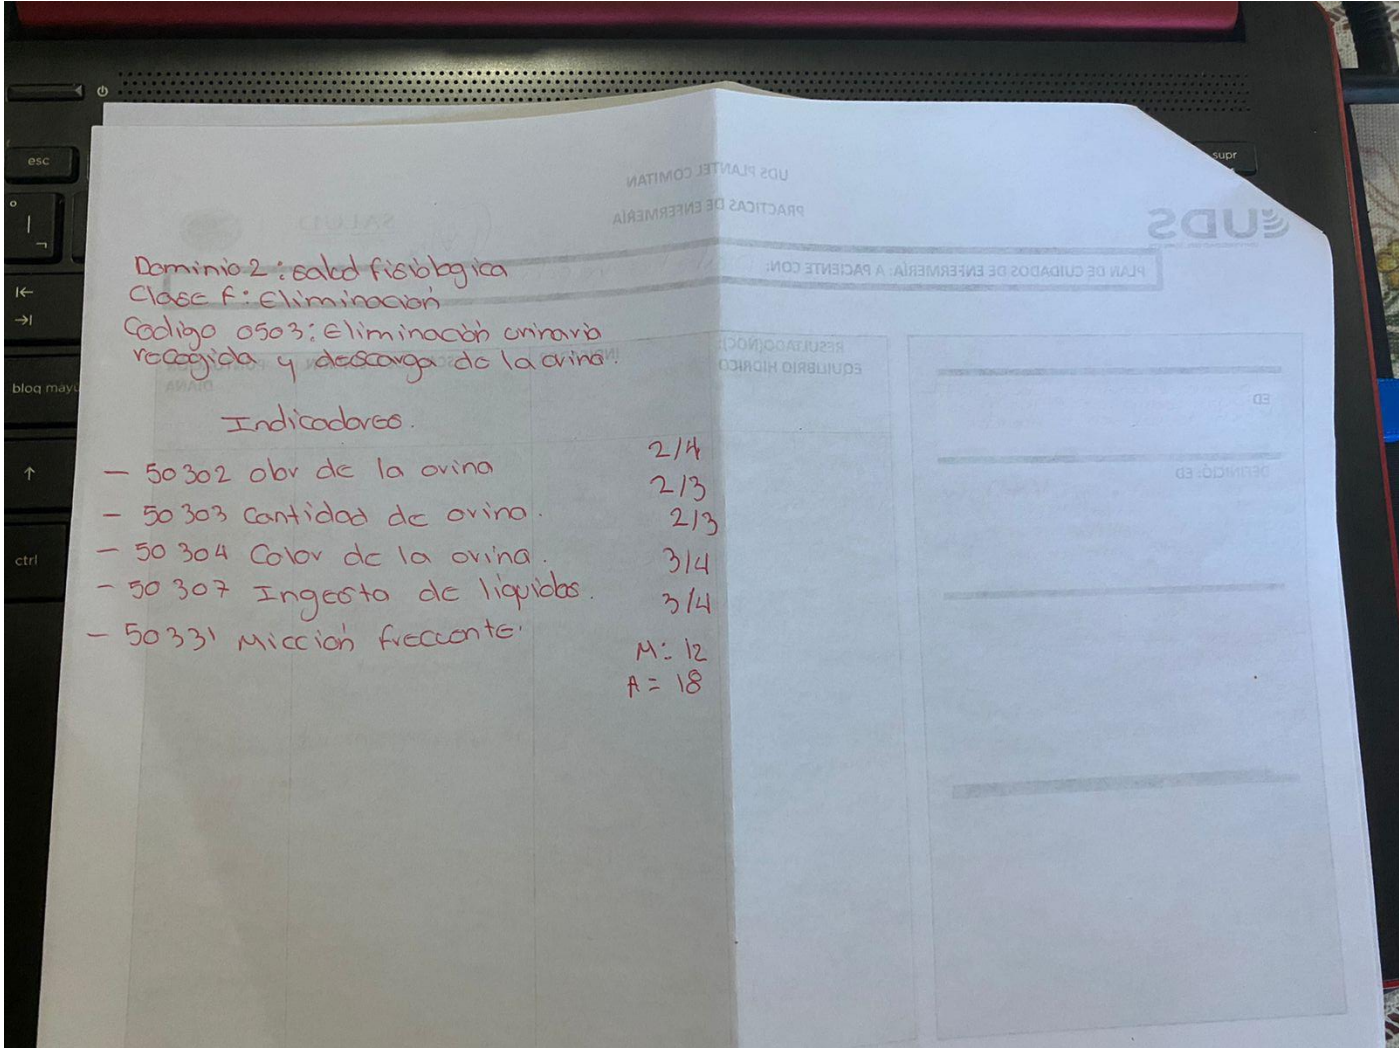 esc
supr
bloq mayú
ctrl
UDS PLANTEL COMITAN
PRACTICAS DE ENFERMERÍA
SALUD
UDS
PLAN DE CUIDADOS DE ENFERMERÍA: A PACIENTE CON:
RESULTADO(NOC):
EQUILIBRIO HIDRICO
DIANA
ED
DEFINICIÓ: ED
Dominio 2: salud fisiologica
Clase F: Eliminación
Codigo 0503: Eliminación urinaria
recogida y descarga de la orina.
Indicadores.
- 50302 olor de la orina 2/4
- 50303 Cantidad de orina. 2/3
- 50304 Color de la orina. 2/3
- 50307 Ingesta de liquidos. 3/4
- 50331 Micción frecuente. 3/4
M: 12
A = 18